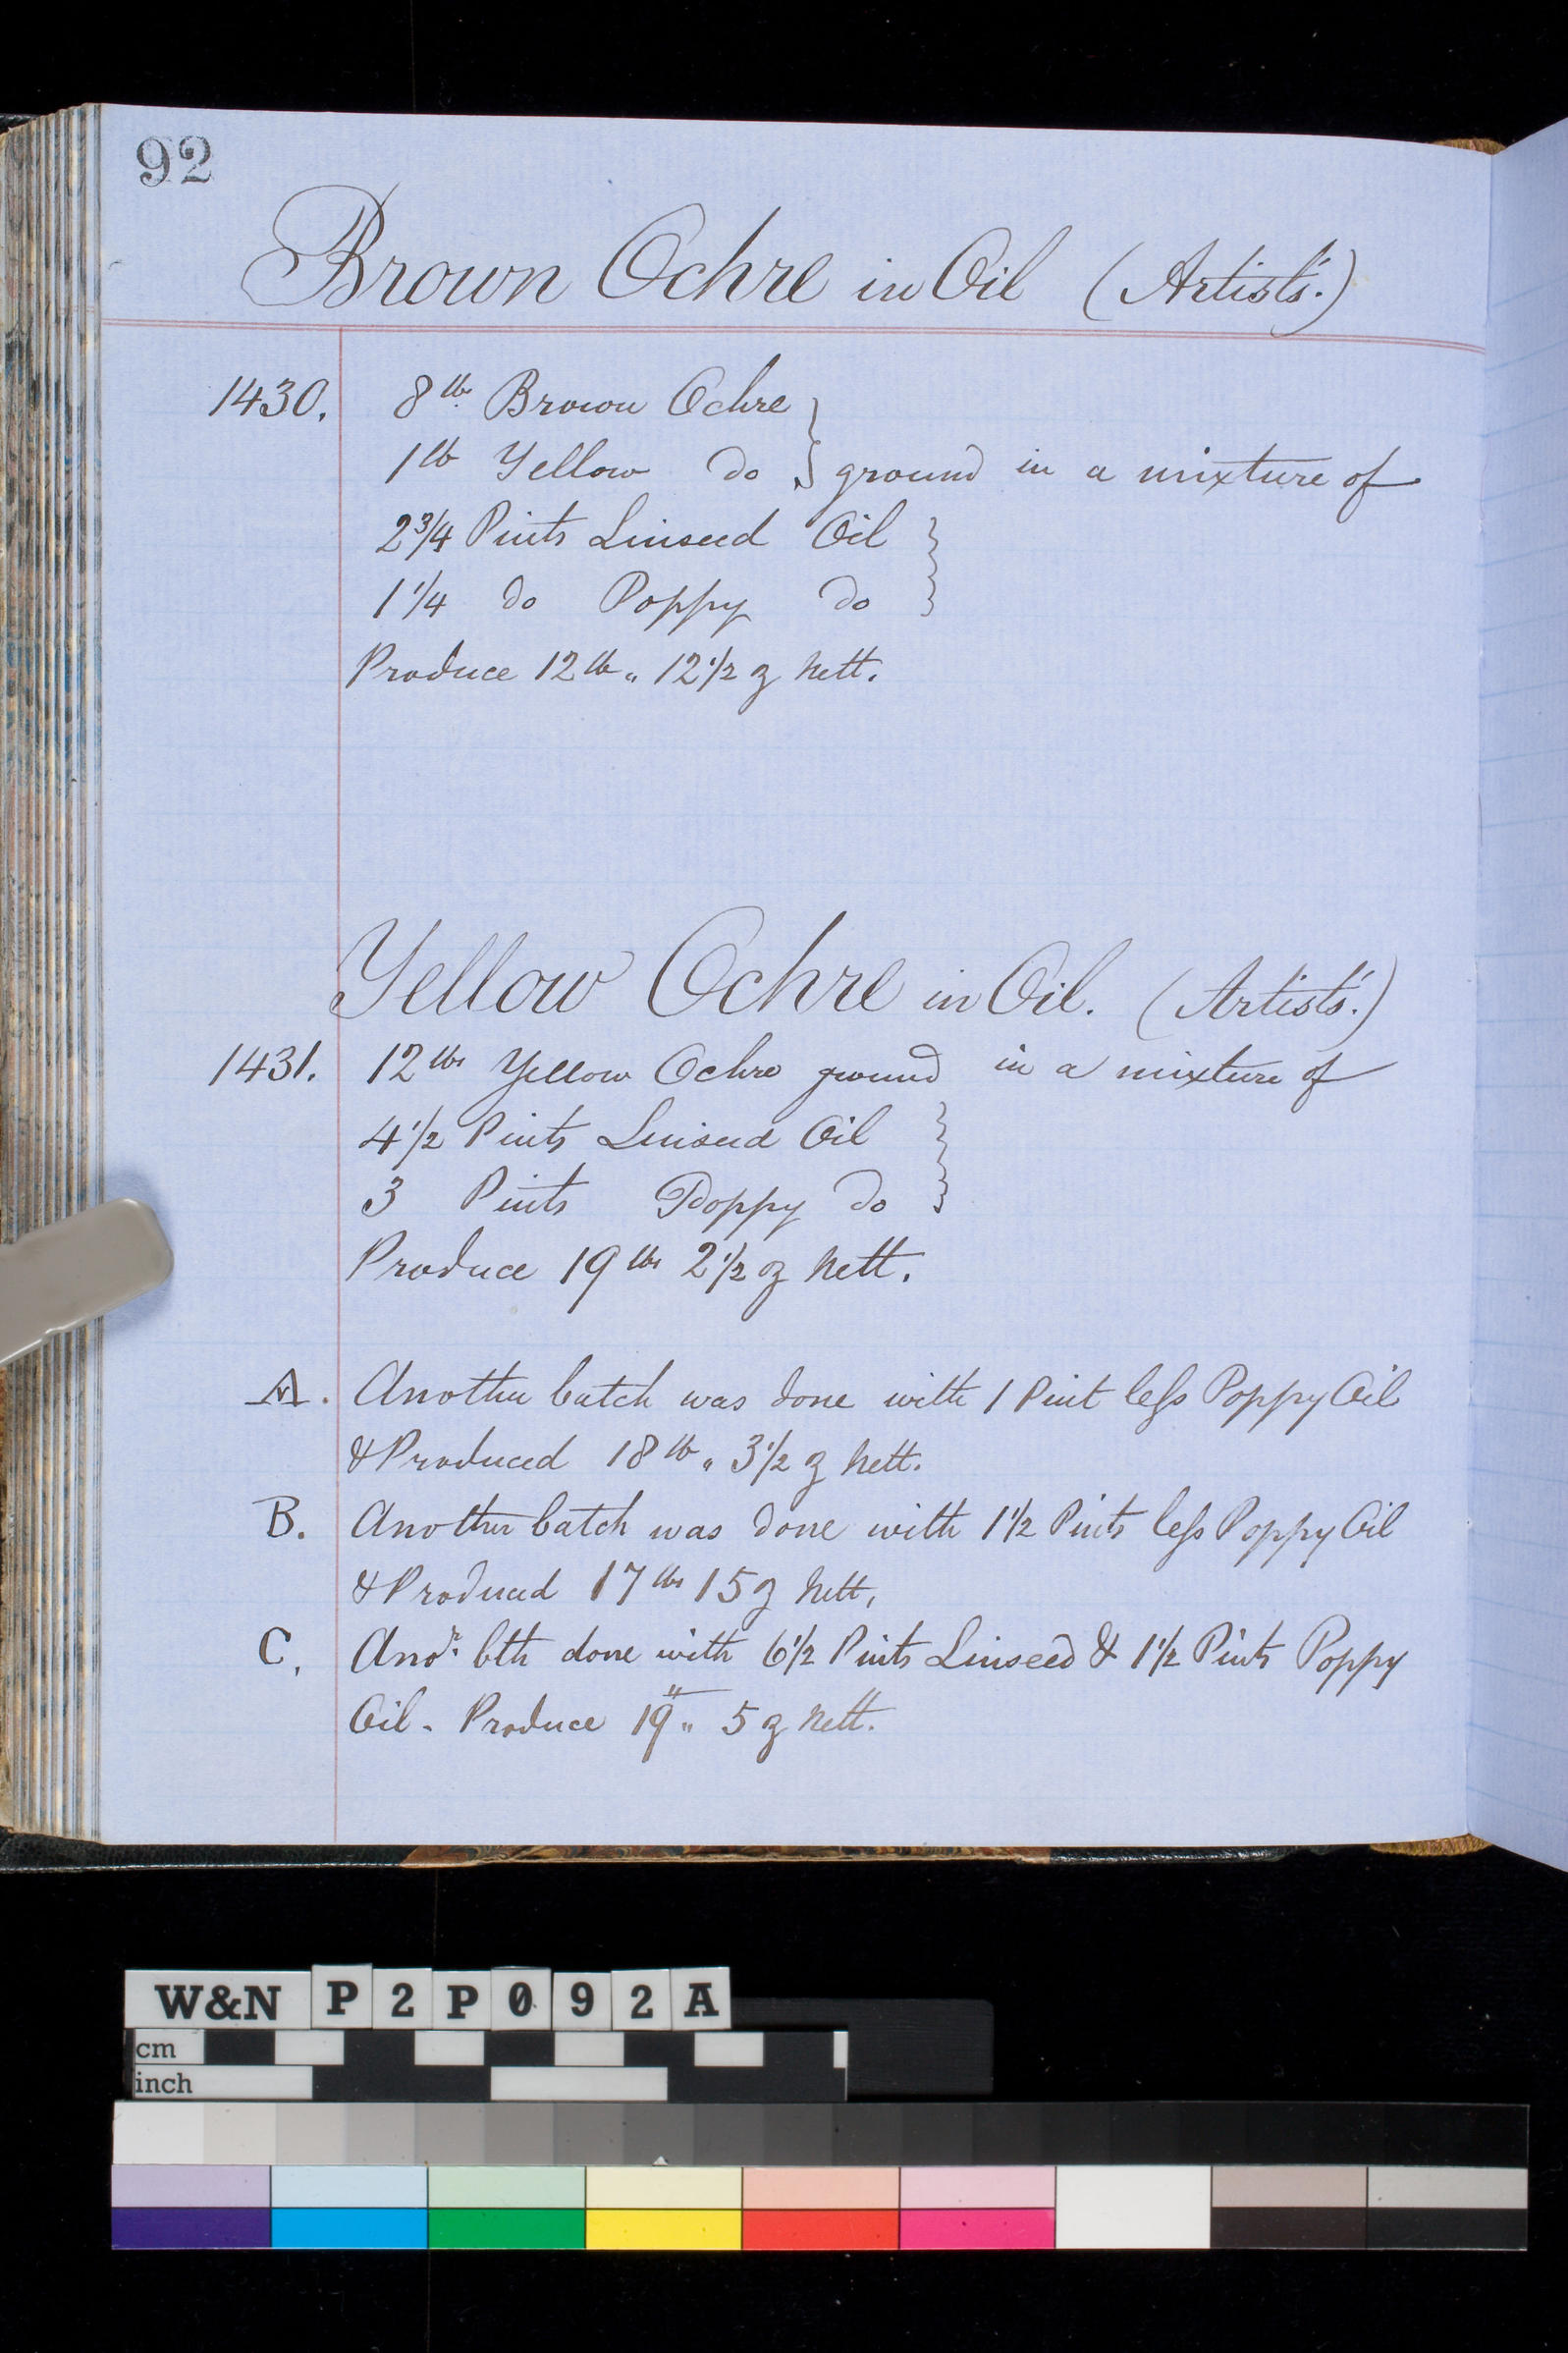 92
Brown Ochre in Oil (Artists'.)
1430. 8 lb. Brown Ochre }
1 lb Yellow do } ground in a mixture of
2 3/4 Pints Linseed Oil }
1 1/4 do Poppy do }
Produce 12 lb " 12 1/2 oz Nett.
Yellow Ochre in Oil. (Artists'.)
1431. 12 lbs Yellow Ochre ground in a mixture of
4 1/2 Pints Linseed Oil }
3 Pints Poppy do }
Produce 19 lbs 2 1/2 oz Nett.
A. Another batch was done with 1 Pint less Poppy Oil
& Produced 18 lb " 3 1/2 oz Nett.
B. Another batch was done with 1 1/2 Pints less Poppy Oil
& Produced 17 lbs 15 oz Nett,
C, Anor. bth done with 6 1/2 Pints Linseed & 1 1/2 Pints Poppy
Oil - Produce 19 " 5 oz Nett.
W&N P2P092A
cm
inch